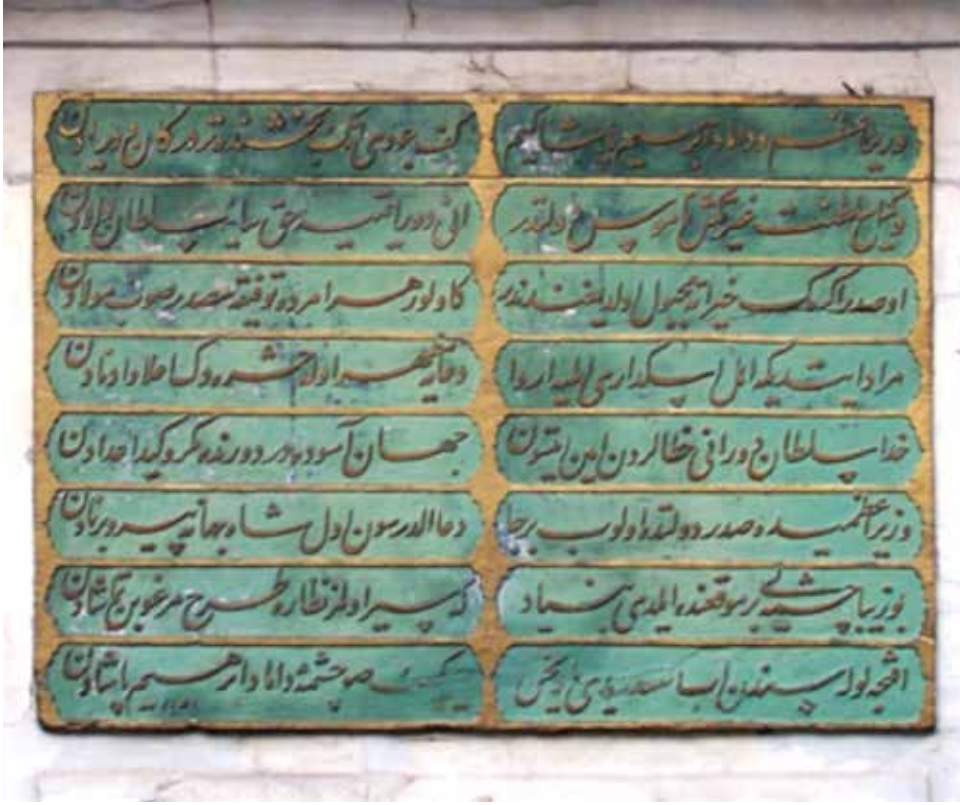 وزیر اعظم و داماد ابراهیم پاشا کیم
کف جودی انک بخشنده تردر کان و دریادن
وکیل سلطنت غیرتکش ناموس دولتدر
انی دور ایتمیه حق سایه سلطان والادن
او صدر اکرمک خیراته مجبول اولدیغندندر
که اولور هر امرده توفیقه مصدر صوب مولادن
مراد ایتدیکه اهل اسکداری ایلیه اروا
دعایه مظهر اوله اعلا و ادنادن
خدا سلطان دورانی خطالردن امین ایتسون
جهان آسوده در دورنده مکر و کید اعدادن
وزیر اعظمیده صدر دولتده اولوب برجا
دعا الدرسون اول شاه جهانه پیر و برنادن
بو زیبا چشمه یی بر موقعنده ایلدی بنیاد
که سیر اولمز نظاره طرح مرغوبن تماشادن
اقنجه لوله سندن اب
صو چشمه داماد ابراهیم پاشادن